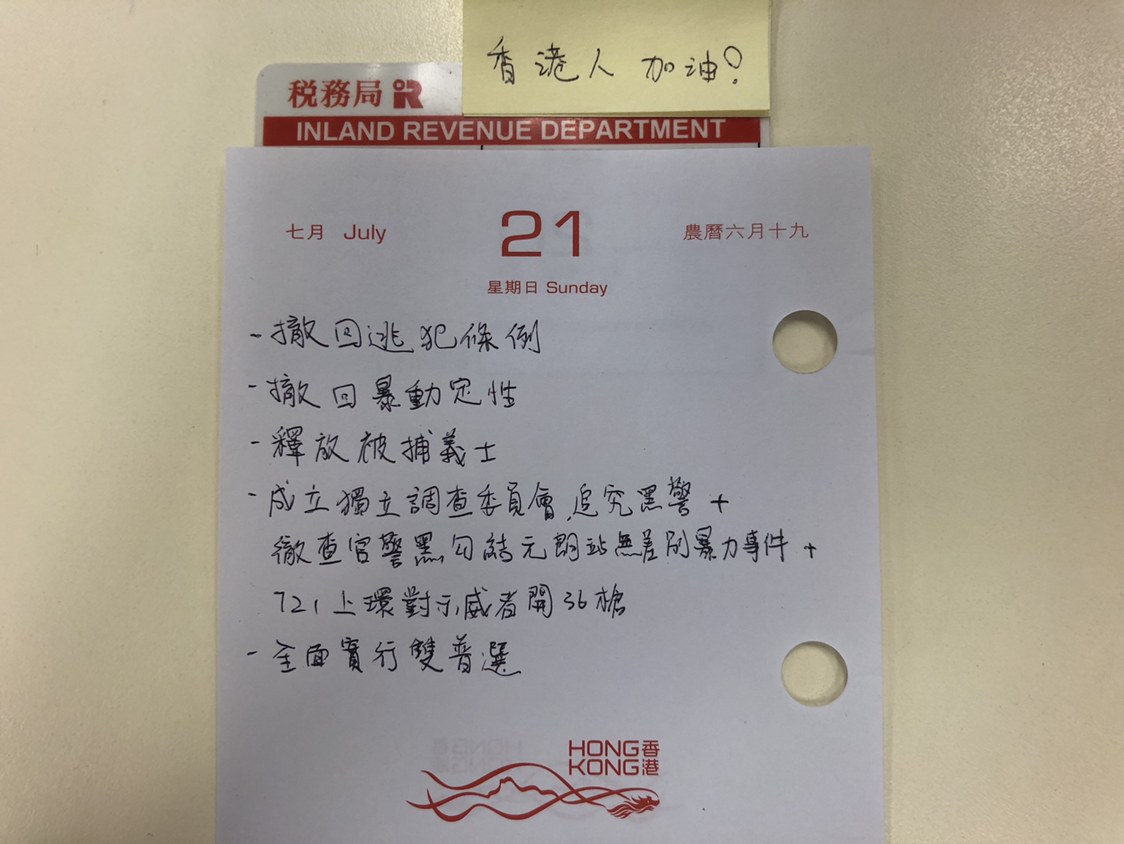 香港人 加油!
税務局 IR
INLAND REVENUE DEPARTMENT
七月 July
21
農曆六月十九
星期日 Sunday
- 撤回逃犯條例
- 撤回暴動定性
- 釋放被捕義士
- 成立獨立調查委員會,追究黑警 +
徹查官警黑勾結元朗站無差別暴力事件 +
721上環對示威者開36槍
- 全面實行雙普選
HONG KONG 香港